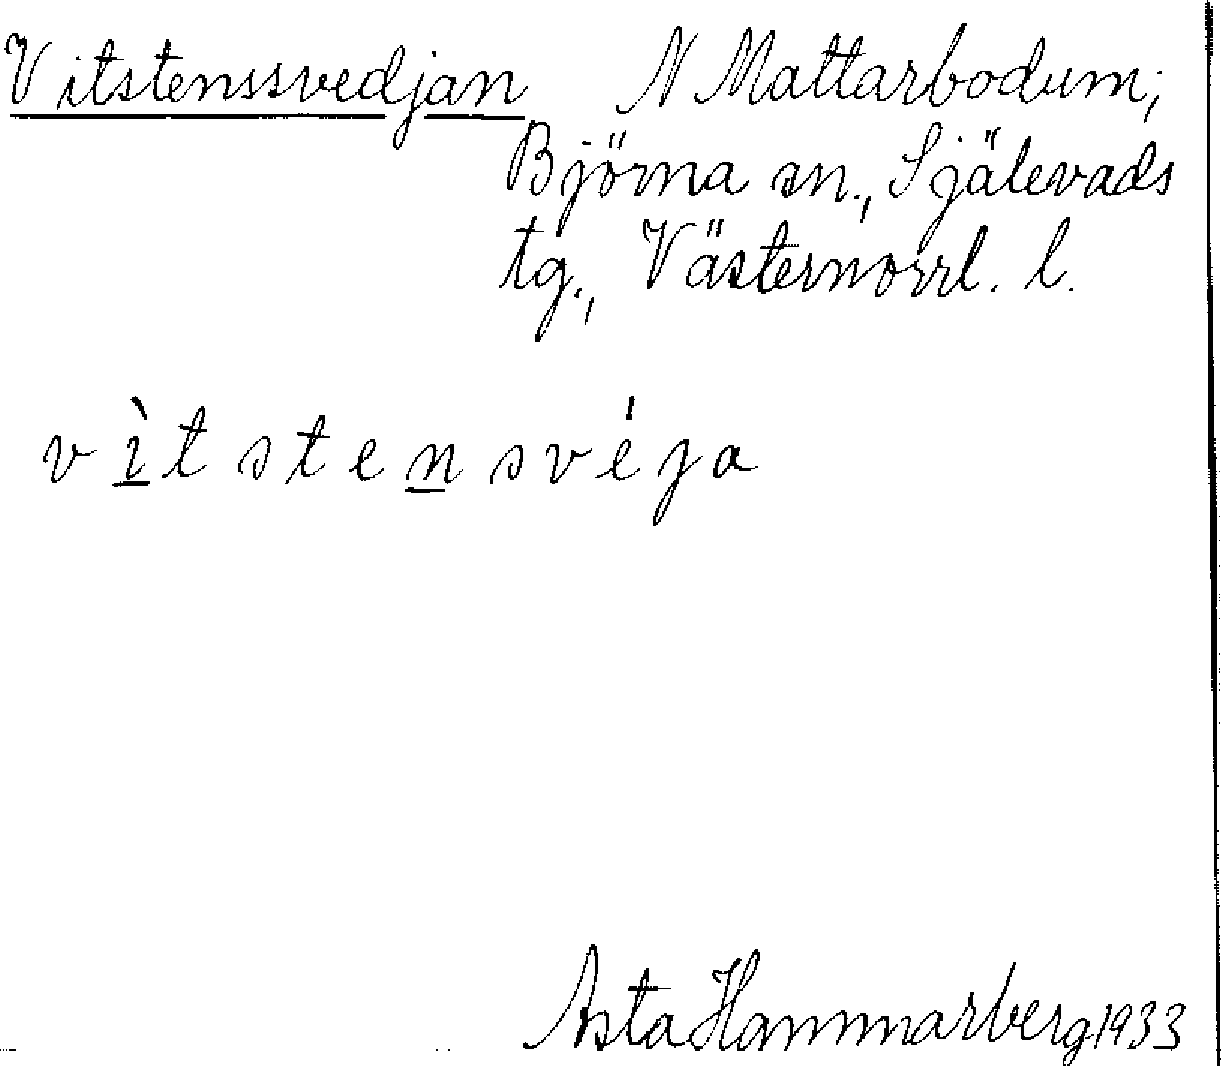 Vitstenssvedjan N Mattarbodum;
Björna sn., Själevads
tg., Västernorrl. l.
vìtstensvéja
Asta Hammarberg 1933